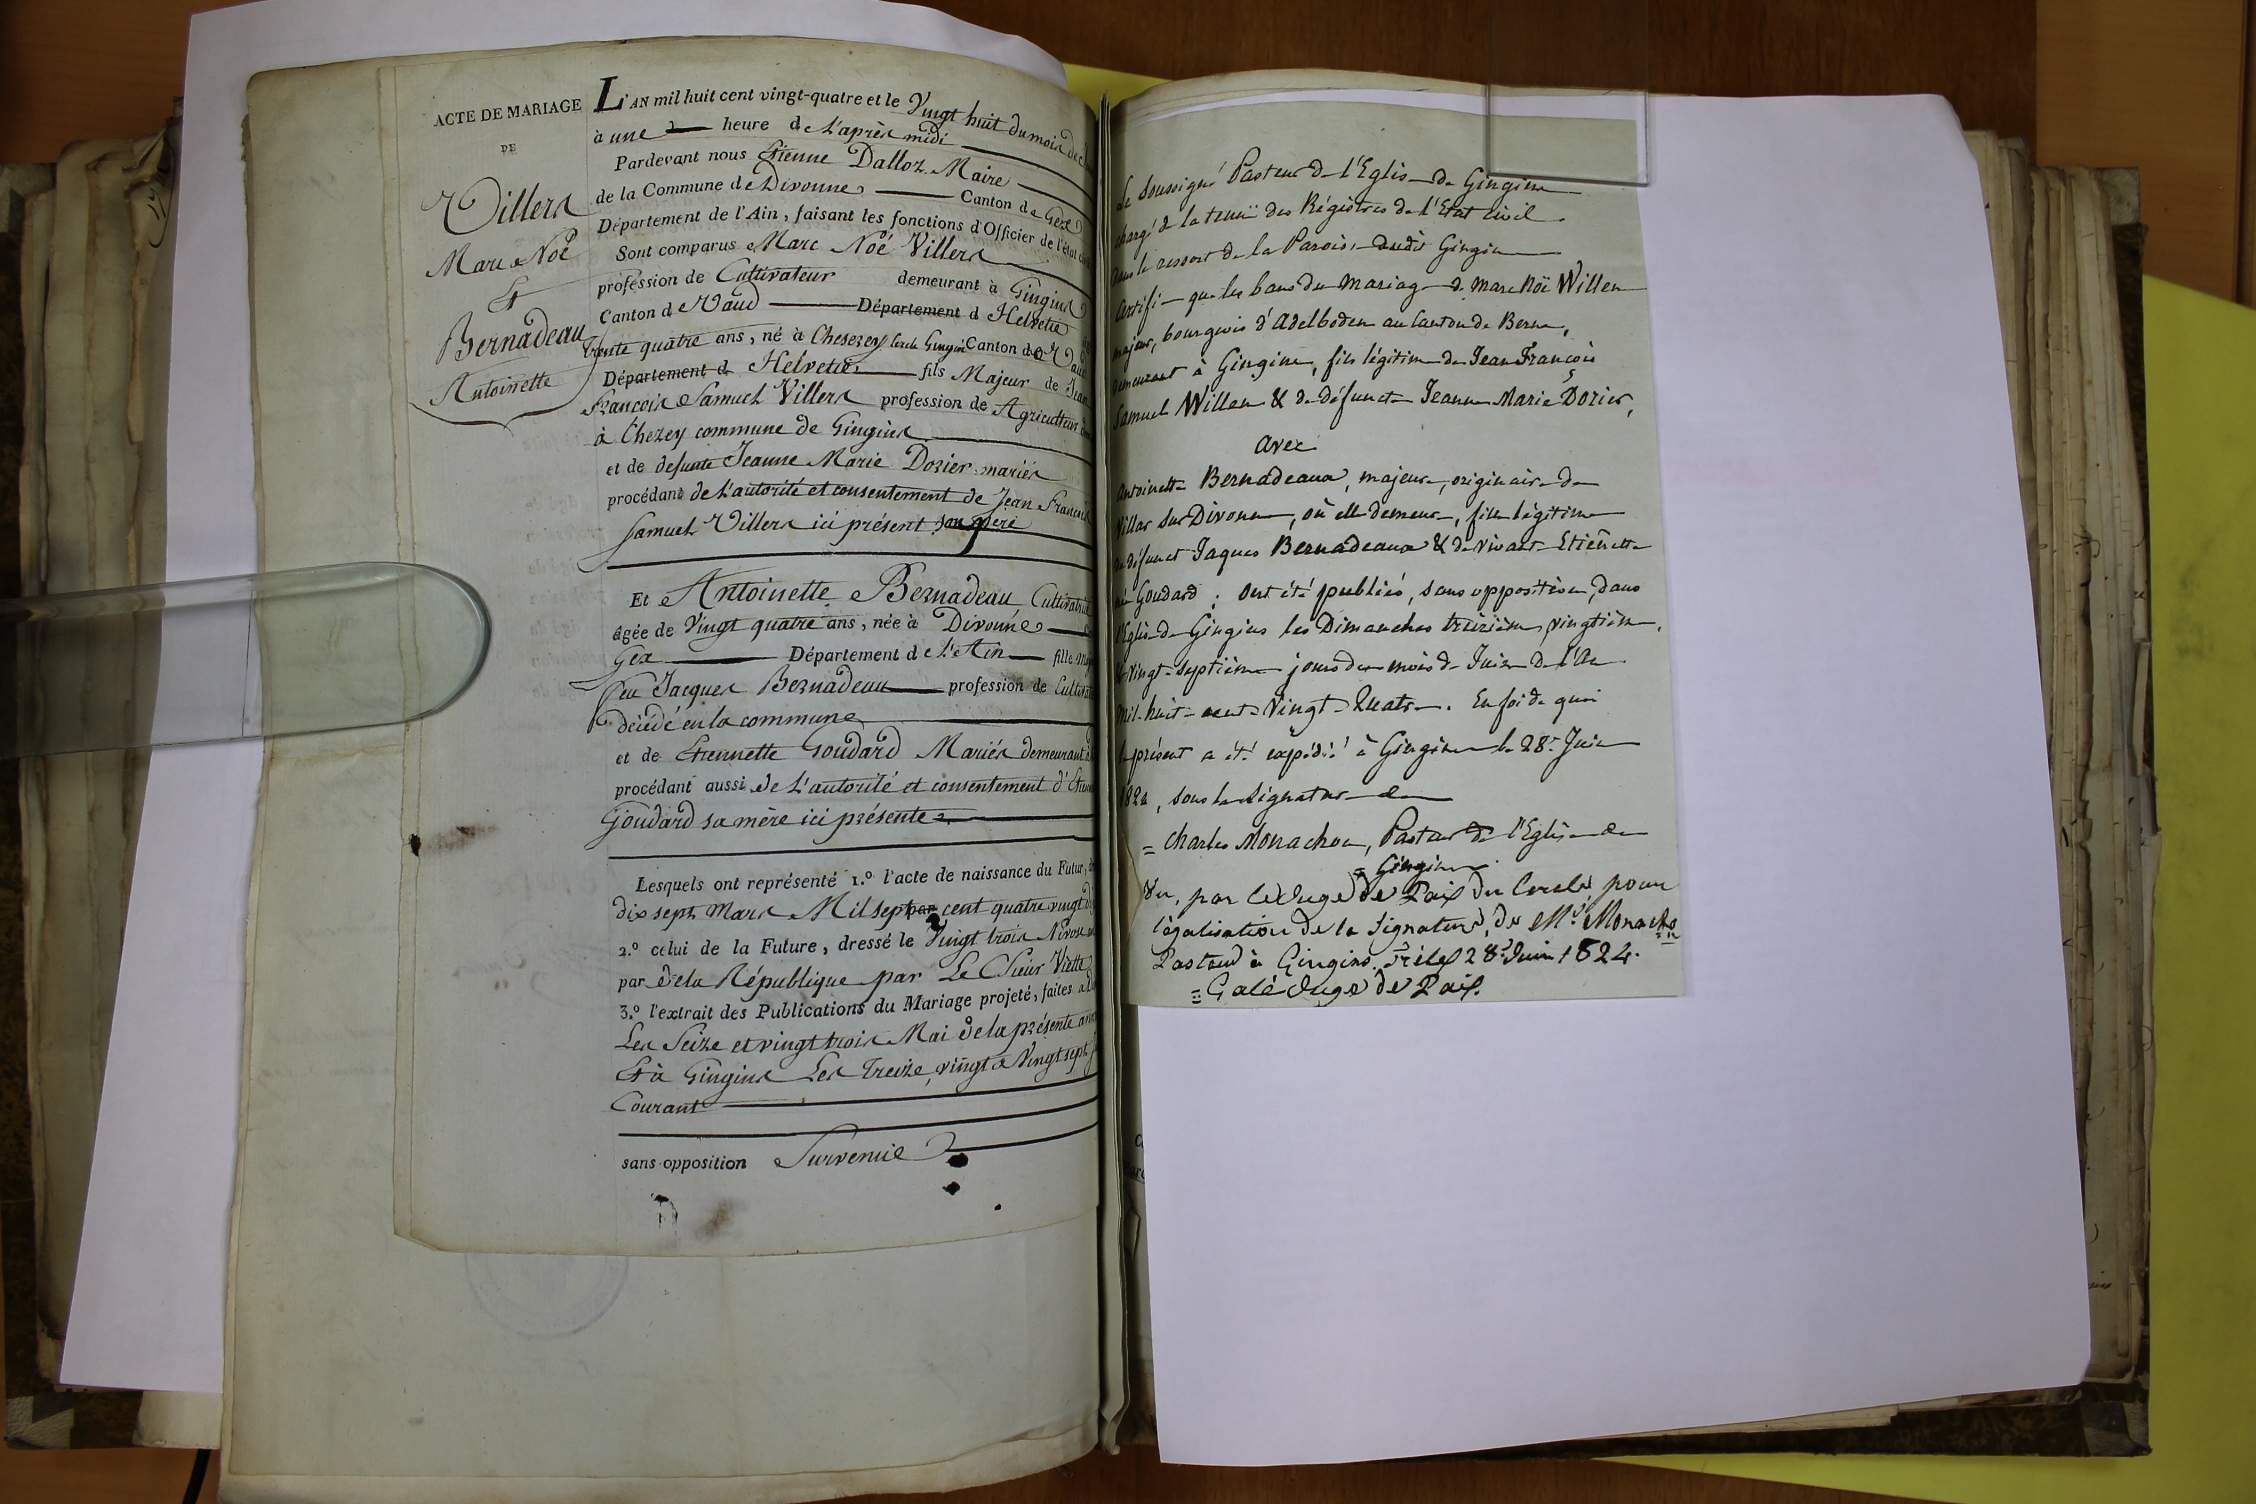 ACTE DE MARIAGE
DE
Villers
Marc Noé
Et
Bernadeau
Antoinette
L'AN mil huit cent vingt-quatre et le Vingt huit du mois de
à une heure de L'après midi
Pardevant nous Etienne Dalloz Maire
de la Commune de Divonne Canton de Gex
Département de l'Ain, faisant les fonctions d'Officier de l'état
Sont comparus Marc Noé Villers
profession de Cultivateur demeurant à Gingins
Canton de Vaud Département d Helvetie
trente quatre ans, né à Chesezey cercle Gingin Canton de Vaud
Département d Helvetie fils Majeur de Jean
François Samuel Villers profession de Agriculteur
à Chezey commune de Gingins
et de defunte Jeanne Marie Dozier mariés
procédant de L'autorité et consentement de Jean François
Samuel Villers ici présent son pere
Et Antoinette Bernadeau Cultivatrice
âgée de Vingt quatre ans, née à Divonne
Gex Département de L'Ain fille
feu Jacques Bernadeau profession de
décédé en la commune
et de Etiennette Goudard Mariés demeurant
procédant aussi de L'autorité et consentement d'
Goudard sa mère ici présente
Lesquels ont représenté 1.° l'acte de naissance du Futur,
dix sept Mars Mil sept par cent quatre vingt
2.° celui de la Future, dressé le Vingt trois Nivose
par de la République par Le Sieur Viette
3.° l'extrait des Publications du Mariage projeté, faites à
Les Seize et vingt trois Mai de la présente
Et à Gingins Les Treize, vingt & Vingt sept
Courant
sans opposition Survenue
Le soussigné Pasteur de l'Eglise de Gingins
chargé de la tenuë des Régistres de l'Etat civil
dans le ressort de la Paroisse dudit Gingins
Certifie que les bans du mariage de Marc Noë Willen
majeur, bourgeois d'Adelboden au Canton de Berne,
demeurant à Gingins, fils légitime de Jean François
Samuel Willen & de défuncte Jeanne Marie Dozier,
avec
Antoinette Bernadeaux, majeure, originaire de
Villar sur Divonne, où elle demeure, fille légitime
de défunct Jaques Bernadeaux & de vivante Etienette
née Goudard; ont été publiés, sans opposition, dans
l'Eglise de Gingins les Dimanches treizième, vingtième,
& vingt-septième jours du mois de Juin de l'An
mil-huit-cent-Vingt-Quatre. En foi de quoi
le présent a été expédié à Gingins le 28e Juin
1824, sous la signature de
= Charles Monachon, Pasteur de l'Eglise de
= Gingins
Vu, par le Juge de Paix du Cercle, pour
légalisation de la Signature, de Mr. Monachon
Pasteur à Gingins. 28e Juin 1824.
= Galé Juge de Paix.